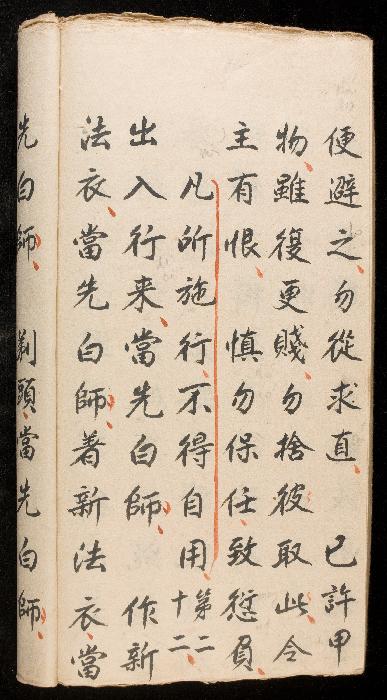 便避之勿從求直　已許甲
物雖復更賤勿捨彼取此令
主有恨　慎勿保任致愆負
凡所施行不得自用第二十二
出入行来當先白師　作新
法衣當先白師着新法衣當
先白師　剃頭當先白師